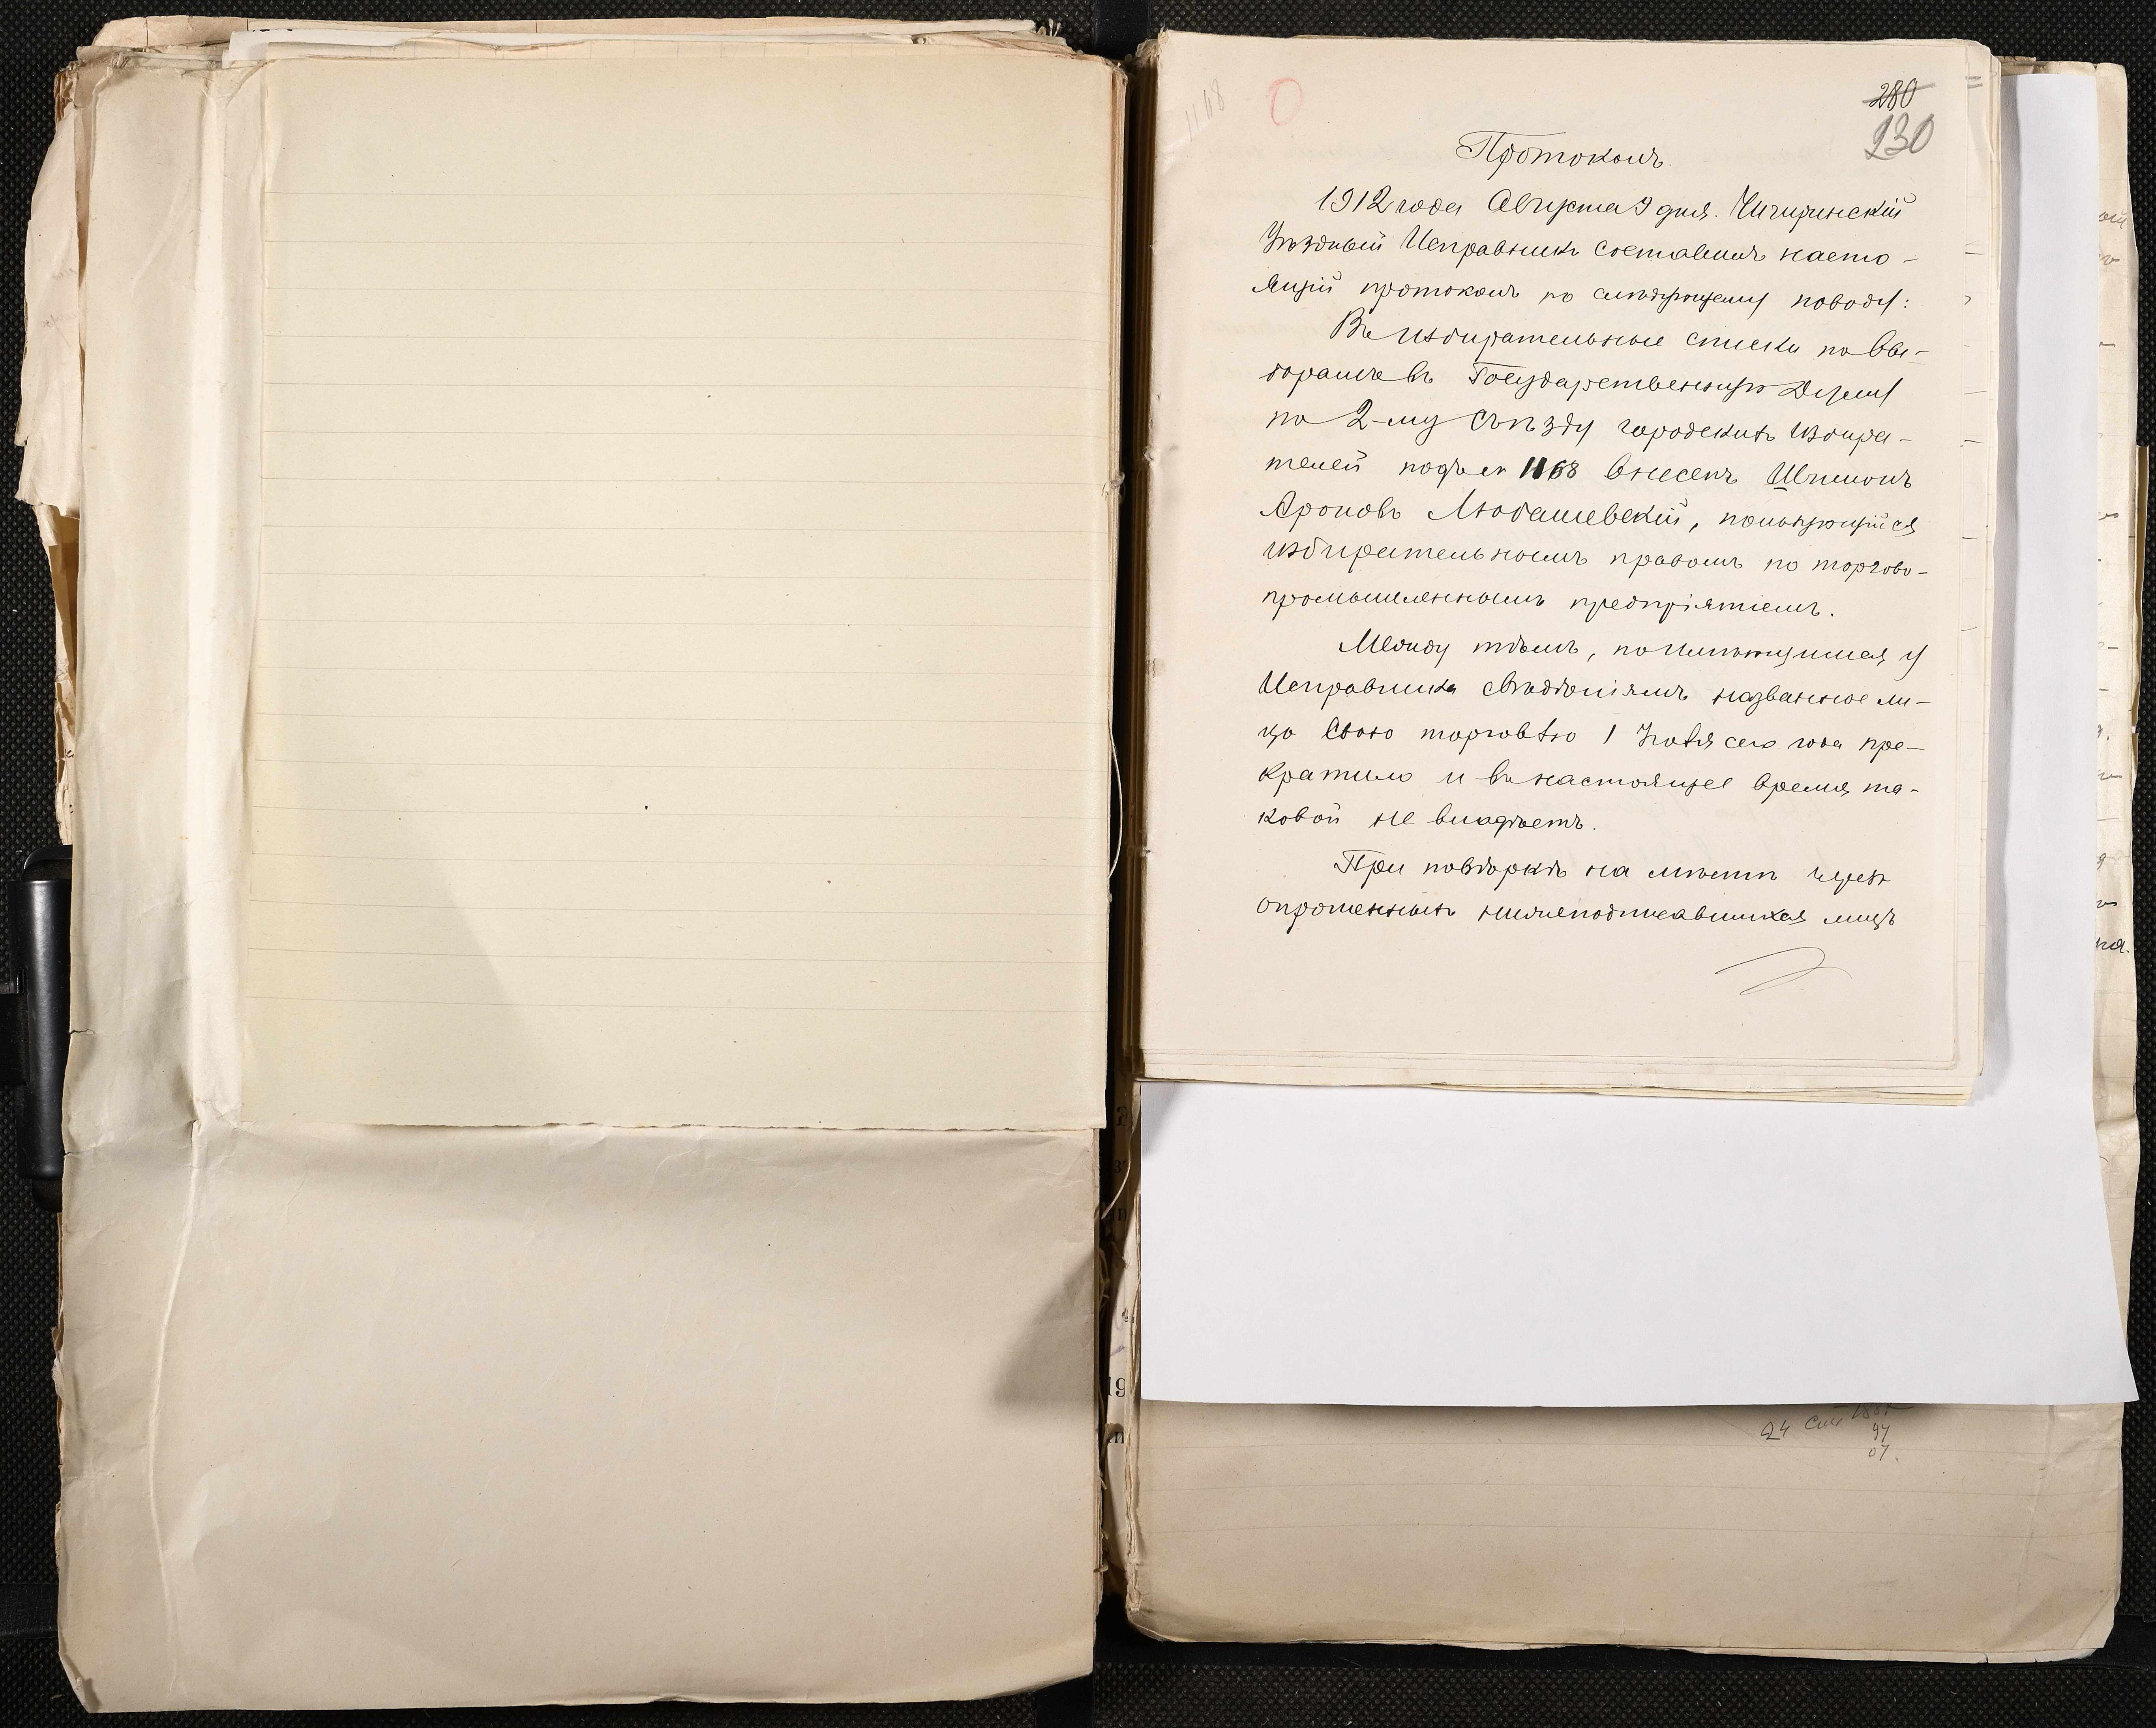 1168
280
130
Протоколъ.
1912 года Августа 9 дня. Чигиринскій
Уѣздный Исправникъ составилъ насто-
ящій протоколъ по слѣдующему поводу:
Въ избирательные списки по Вы-
борамъ въ Государственную Думу
по 2-му съѣзду городскихъ Избира-
телей подъ № 1168 внесенъ Шлиома
Ароновъ Любашевскій, пользующійся
избирательнымъ правомъ по торгово-
промышленнымъ предпріятіемъ.
Между тѣмъ, по имѣющимся у
Исправника свѣдѣніямъ названное ли-
цо свою торговлю 1 Іюля сего года пре-
кратило и въ настоящее время та-
ковой не владѣетъ.
При повѣркѣ на мѣстѣ черезъ
опрошенныхъ нижеподписавшихся лицъ
24
94
07.